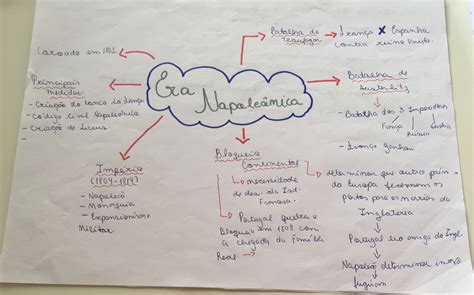 Era
Napoleônica
Coroado em
Batalha de
Trafalgar
França X Espanha
contra reino Unido.
Principais
medidas
- Criação do banco da França
- Código civil Napoleônico
- Criação de Liceus
Batalha de
Austerlitz
- Batalha dos 3 Imperadores
França
Rússia
Áustria
- França ganhou
Império
(1804-1814)
- Napoleão
- Monarquia
- Expansionismo
Militar
Bloqueio
Continental
necessidade
Ind.
Francesa
Portugal quebra o
Bloqueio em 1808 com
a chegada da Família
Real
determinou que outro país
da Europa fechassem os
portos para os navios da
Inglaterra
Portugal era amigo da Ingl.
Napoleão determinou
fugiram